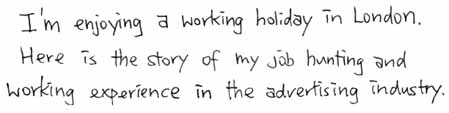 I'm enjoying a working holiday in London.
Here is the story of my job hunting and
working experience in the advertising industry.